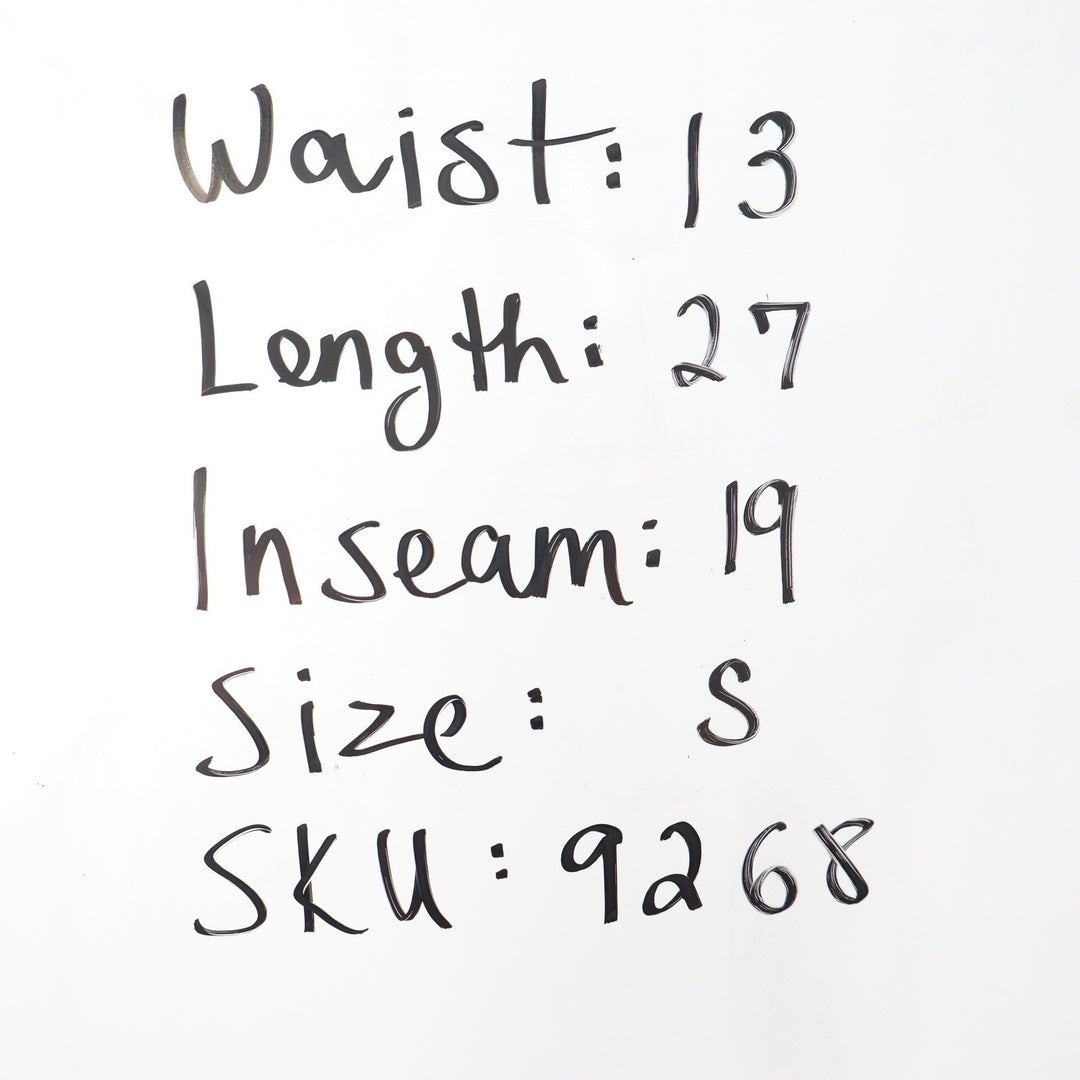 Waist: 13
Length: 27
Inseam: 19
Size: S
SKU: 9268